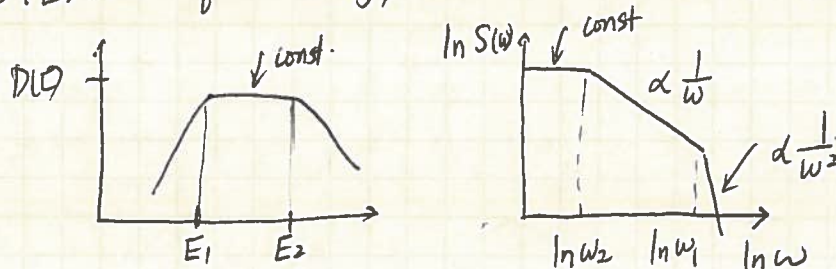 D(E)
const.
E₁
E₂
ln S(ω)
const
∝ 1/ω
∝ 1/ω²
ln ω₂
ln ω₁
ln ω